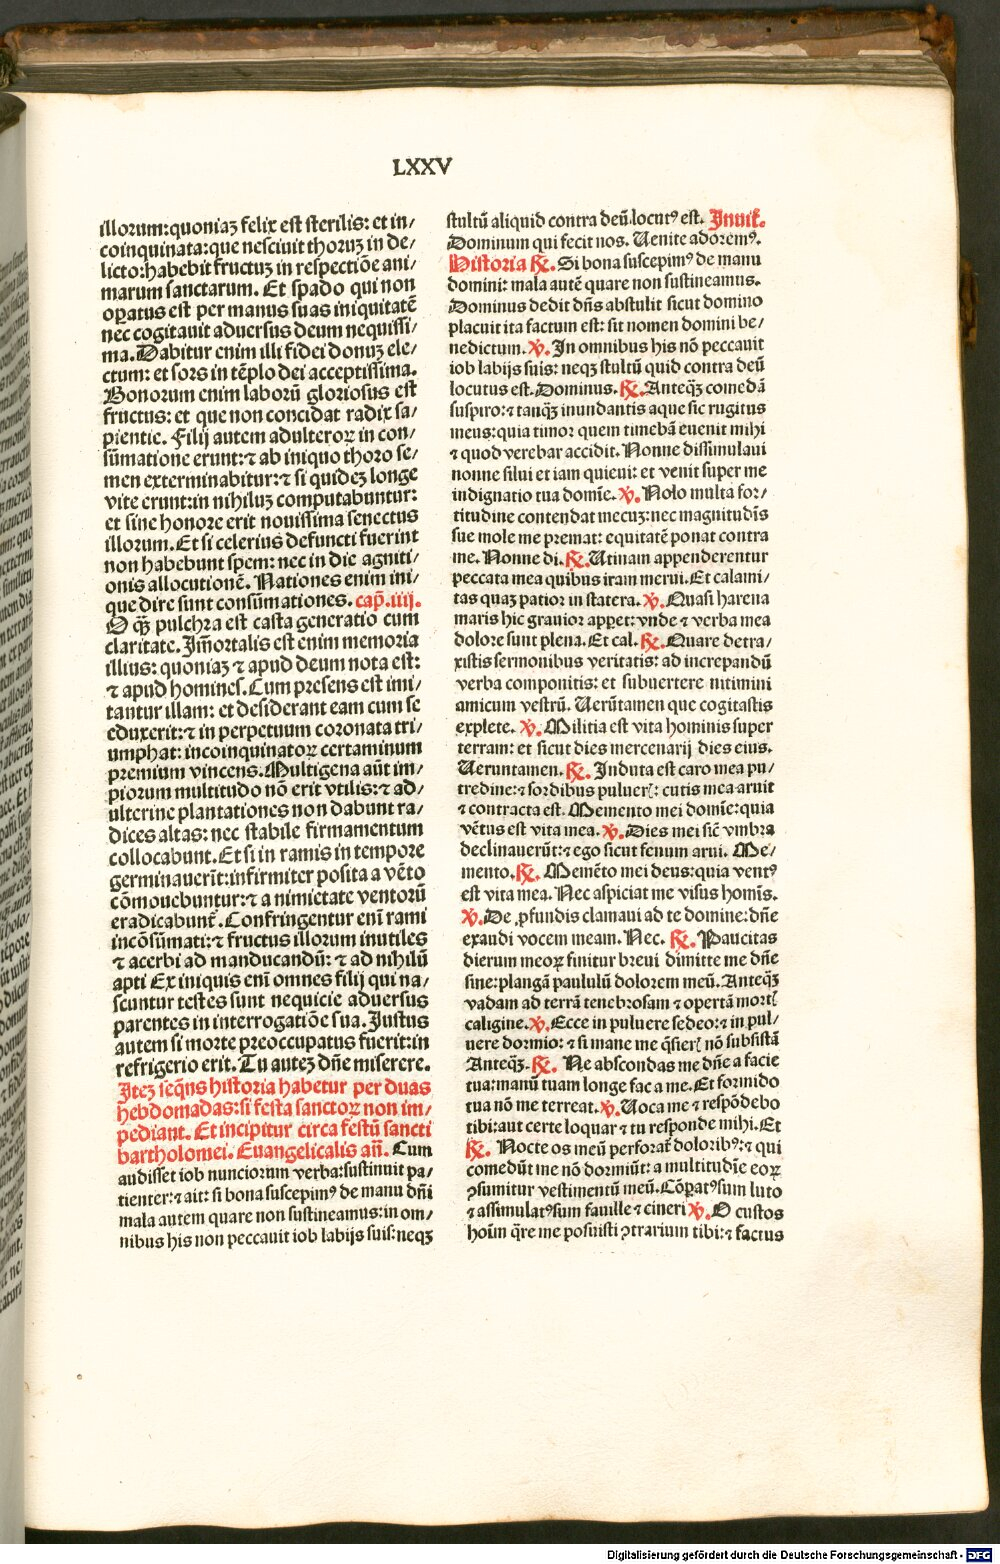 LXXV
illorum:quoniaꝫ felix est sterilis: et in/
coinquinata:que nesciuit thoruꝫ in de/
licto:habebit fructuꝫ in respectiōe ani/
marum sanctarum. Et spado qui non
oꝑatus est per manus suas iniquitatē
nec cogitauit aduersus deum nequissi/
ma.Dabitur enim illi fidei donuꝫ ele/
ctum: et sors in tēplo dei acceptissima.
Bonorum enim laborū gloriosus est
fructus: et que non concidat radix sa/
pientie. Filij autem adulteroꝝ in con/
sūmatione erunt:⁊ ab iniquo thoro se/
men exterminabitur:⁊ si quideꝫ longe
vite erunt:in nihiluꝫ computabuntur:
et sine honore erit nouissima senectus
illorum.Et si celerius defuncti fuerint
non habebunt spem: nec in die agniti/
onis allocutionē. Nationes enim ini/
que dire sunt consūmationes. cap̄.iiij.
O qꝫ̄ pulchra est casta generatio cum
claritate. Jm̄ortalis est enim memoria
illius: quoniaꝫ ⁊ apud deum nota est:
⁊ apud homines. Cum presens est imi/
tantur illam: et desiderant eam cum se
eduxerit:⁊ in perpetuum coronata tri/
umphat: incoinquinatoꝝ certaminum
premium vincens.Multigena aūt im/
piorum multitudo nō erit vtilis:⁊ ad/
ulterine plantationes non dabunt ra/
dices altas: nec stabile firmamentum
collocabunt. Et si in ramis in tempore
germinauerīt:infirmiter posita a vēto
cōmouebuntur:⁊ a nimietate ventorū
eradicabunt̄. Confringentur enī rami
incōsūmati:⁊ fructus illorum inutiles
⁊ acerbi ad manducandū: ⁊ ad nihilū
apti Ex iniquis enī omnes filij qui na/
scuntur testes sunt nequicie aduersus
parentes in interrogatiōe sua. Justus
autem si morte preoccupatus fuerit:in
refrigerio erit. Tu auteꝫ dn̄e miserere.
Jteꝫ seqn̄s historia habetur per duas
hebdomadas:si festa sanctoꝝ non im/
pediant. Et incipitur circa festū sancti
bartholomei. Euangelicalis an̄. Cum
audisset iob nunciorum verba:sustinuit pa/
tienter:⁊ ait: si bona suscepimꝰ de manu dn̄i
mala autem quare non sustineamus:in om/
nibus his non peccauit iob labijs suis:neqꝫ
stultū aliquid contra deū.locutꝰ est. Jnuit̄.
Dominum qui fecit nos. Uenite adoremꝰ.
Historia ℟. Si bona suscepimꝰ de manu
domini: mala autē quare non sustineamus.
Dominus dedit dn̄s abstulit sicut domino
placuit ita factum est: sit nomen domini be/
nedictum. ℣. Jn omnibus his nō peccauit
iob labijs suis: neqꝫ stultū quid contra deū
locutus est. Dominus. ℟. Anteqꝫ̄ comedā
suspiro:⁊ tanqꝫ̄ inundantis aque sic rugitus
meus:quia timor quem timebā euenit mihi
⁊ quod verebar accidit. Nonne dissimulaui
nonne silui et iam quieui: et venit super me
indignatio tua domīe. ℣. Nolo multa for/
titudine contendat mecuꝫ:nec magnitudīs
sue mole me premat: equitatē ponat contra
me. Nonne di. ℟. Utinam appenderentur
peccata mea quibus iram merui.Et calami/
tas quaꝫ patior in statera. ℣. Quasi harena
maris hic grauior apꝑet: vnde ⁊ verba mea
dolore sunt plena. Et cal. ℟. Quare detra/
xistis sermonibus veritatis: ad increpandū
verba componitis: et subuertere nitimini
amicum vestrū. Uerūtamen que cogitastis
explete. ℣. Militia est vita hominis super
terram: et sicut dies mercenarij dies eius.
Ueruntamen. ℟. Jnduta est caro mea pu/
tredine:⁊ sordibus pulueꝛꝭ: cutis mea aruit
⁊ contracta est. Memento mei domīe:quia
vētus est vita mea. ℣. Dies mei sic̄ vmbra
declinauerūt:⁊ ego sicut fenum arui. Me/
mento. ℟. Memēto mei deus:quia ventꝰ
est vita mea. Nec aspiciat me visus homīs.
℣. De ꝓfundis clamaui ad te domine:dn̄e
exaudi vocem meam. Nec. ℟. Paucitas
dierum meoꝝ finitur breui dimitte me dn̄e
sine:plangā paululū dolorem meū. Anteqꝫ̄
vadam ad terrā tenebrosam ⁊ opertā mortꝭ
caligine. ℣. Ecce in puluere sedeo:⁊ in pul/
uere dormio: ⁊ si mane me q̄sierꝭ nō subsistā
Anteqꝫ̄. ℟. Ne abscondas me dn̄e a facie
tua:manū tuam longe fac a me. Et formido
tua nō me terreat. ℣. Uoca me ⁊ respōdebo
tibi:aut certe loquar ⁊ tu responde mihi. Et
℟. Nocte os meū perforat̄ doloribꝰ:⁊ qui
comedūt me nō dormiūt: a multitudīe eoꝝ
ꝯsumitur vestimentū meū. Cōꝑatꝰsum luto
⁊ assimulatꝰsum fauille ⁊ cineri ℣. O custos
hoīm q̄re me posuisti ꝯtrarium tibi:⁊ factus
Digitalisierung gefördert durch die Deutsche Forschungsgemeinschaft - DFG